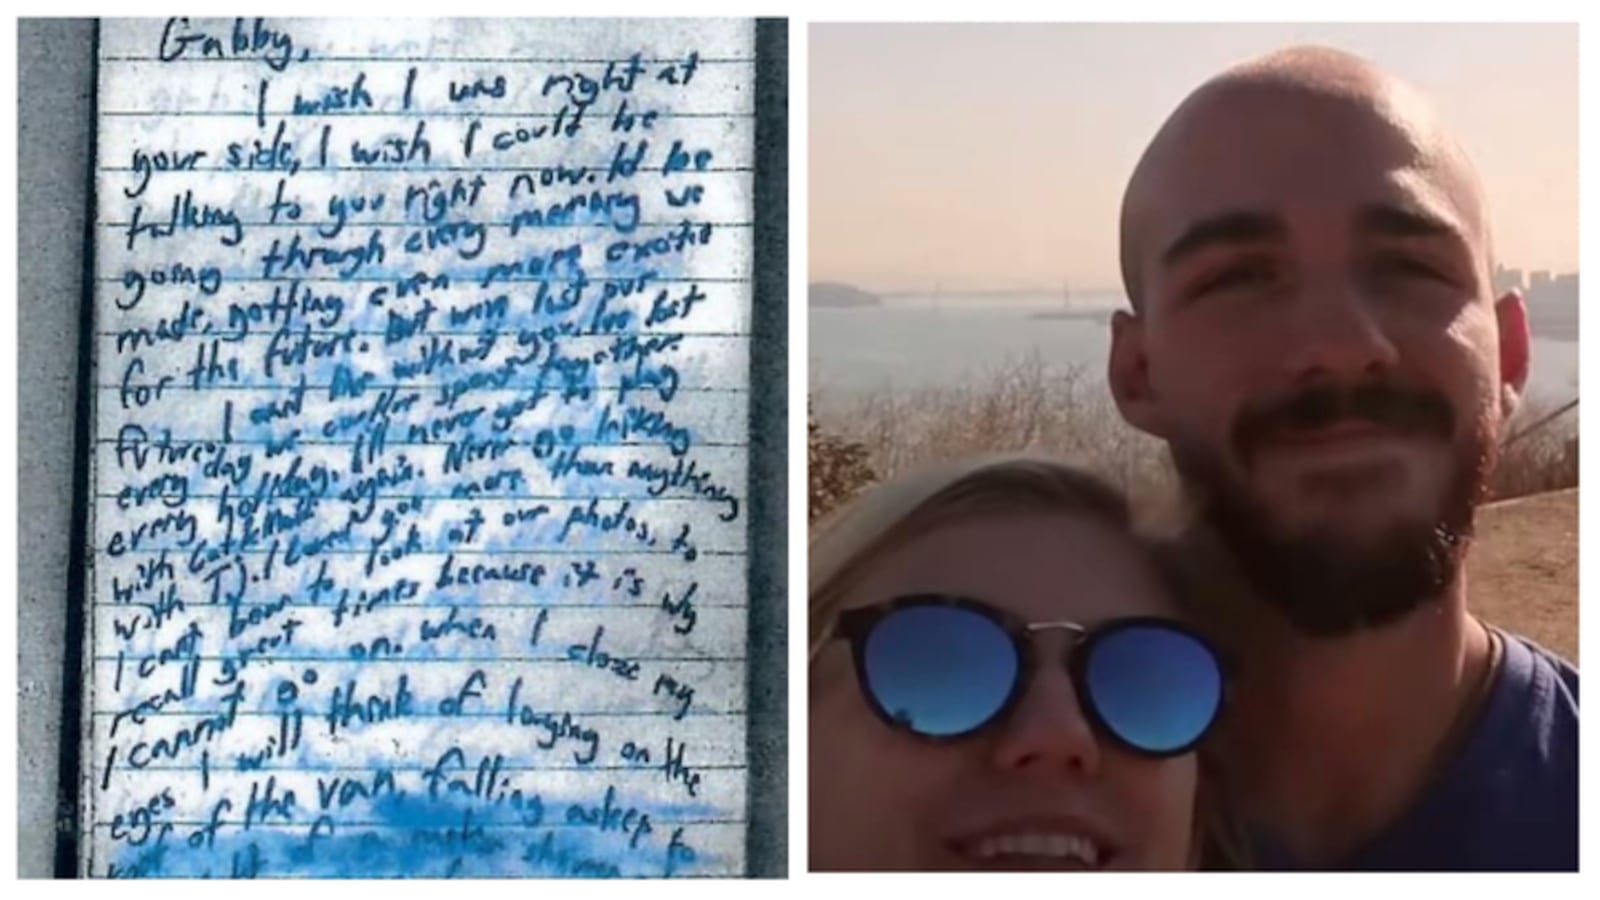 Gabby,
I wish I was right at
your side, I wish I could be
talking to you right now. Id be
going through every memory we
made, getting even more excited
for the future. But weve lost our
future. I cant live without you. Ive lost
every day we could've spent together,
every holiday. I'll never get to play
with again. Never go hiking
with TJ. I loved you more than anything
I cant bear to look at our photos, to
recall great times because it is why
I cannot go on. when I close my
eyes I will think of laughing on the
of the van, falling asleep to